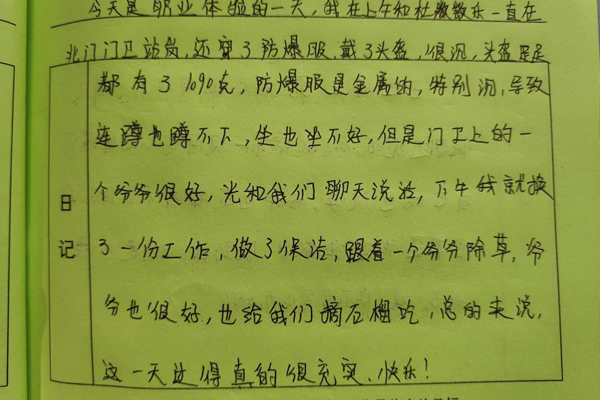 今天是职业体验的一天,我在上午和杜散散乐一直在
北门门卫站岗,还穿了防爆服,戴了头盔,很沉,头盔足足
都有了1090克,防爆服是金属的,特别沉,导致
连蹲也蹲不下,坐也坐不好,但是门卫上的一
个爷爷很好,光和我们聊天说话,下午我就换
日记
了一份工作,做了保洁,跟着一个爷爷除草,爷
爷也很好,也给我们摘石榴吃,总的来说,
这一天过得真的很充实、快乐!